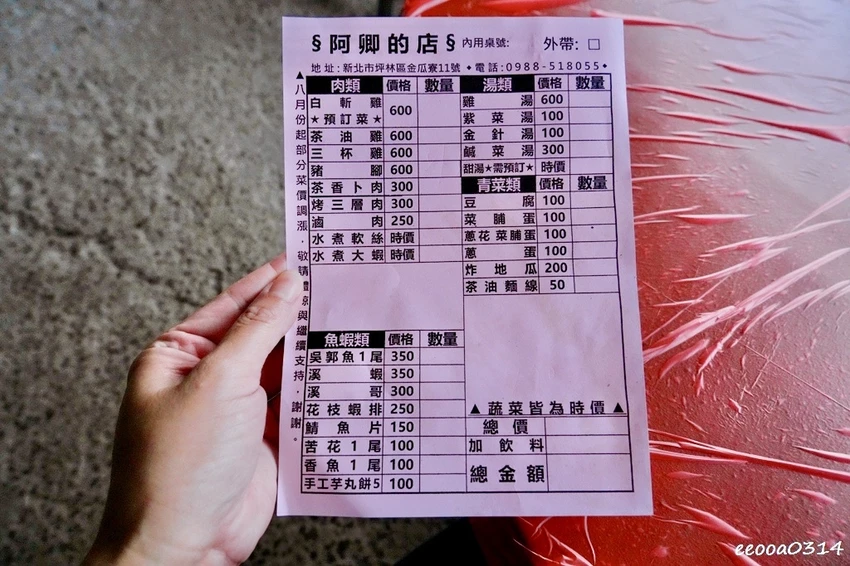 §阿卿的店§ 內用桌號: 外帶: □
地址:新北市坪林區金瓜寮11號 ◆電話:0988-518055◆
▲八月份起部分菜價調漲.敬請體諒與繼續支持.謝謝。
肉類 價格 數量
白斬雞 600
★預訂菜★
茶油雞 600
三杯雞 600
豬腳 600
茶香卜肉 300
烤三層肉 300
滷肉 250
水煮軟絲 時價
水煮大蝦 時價
魚蝦類 價格 數量
吳郭魚1尾 350
溪蝦 350
溪哥 300
花枝蝦排 250
鯖魚片 150
苦花1尾 100
香魚1尾 100
手工芋丸餅5 100
湯類 價格 數量
雞湯 600
紫菜湯 100
金針湯 100
鹹菜湯 300
甜湯★需預訂★ 時價
青菜類 價格 數量
豆腐 100
菜脯蛋 100
蔥花菜脯蛋 100
蔥蛋 100
炸地瓜 200
茶油麵線 50
▲蔬菜皆為時價▲
總價
加飲料
總金額
eeooa0314